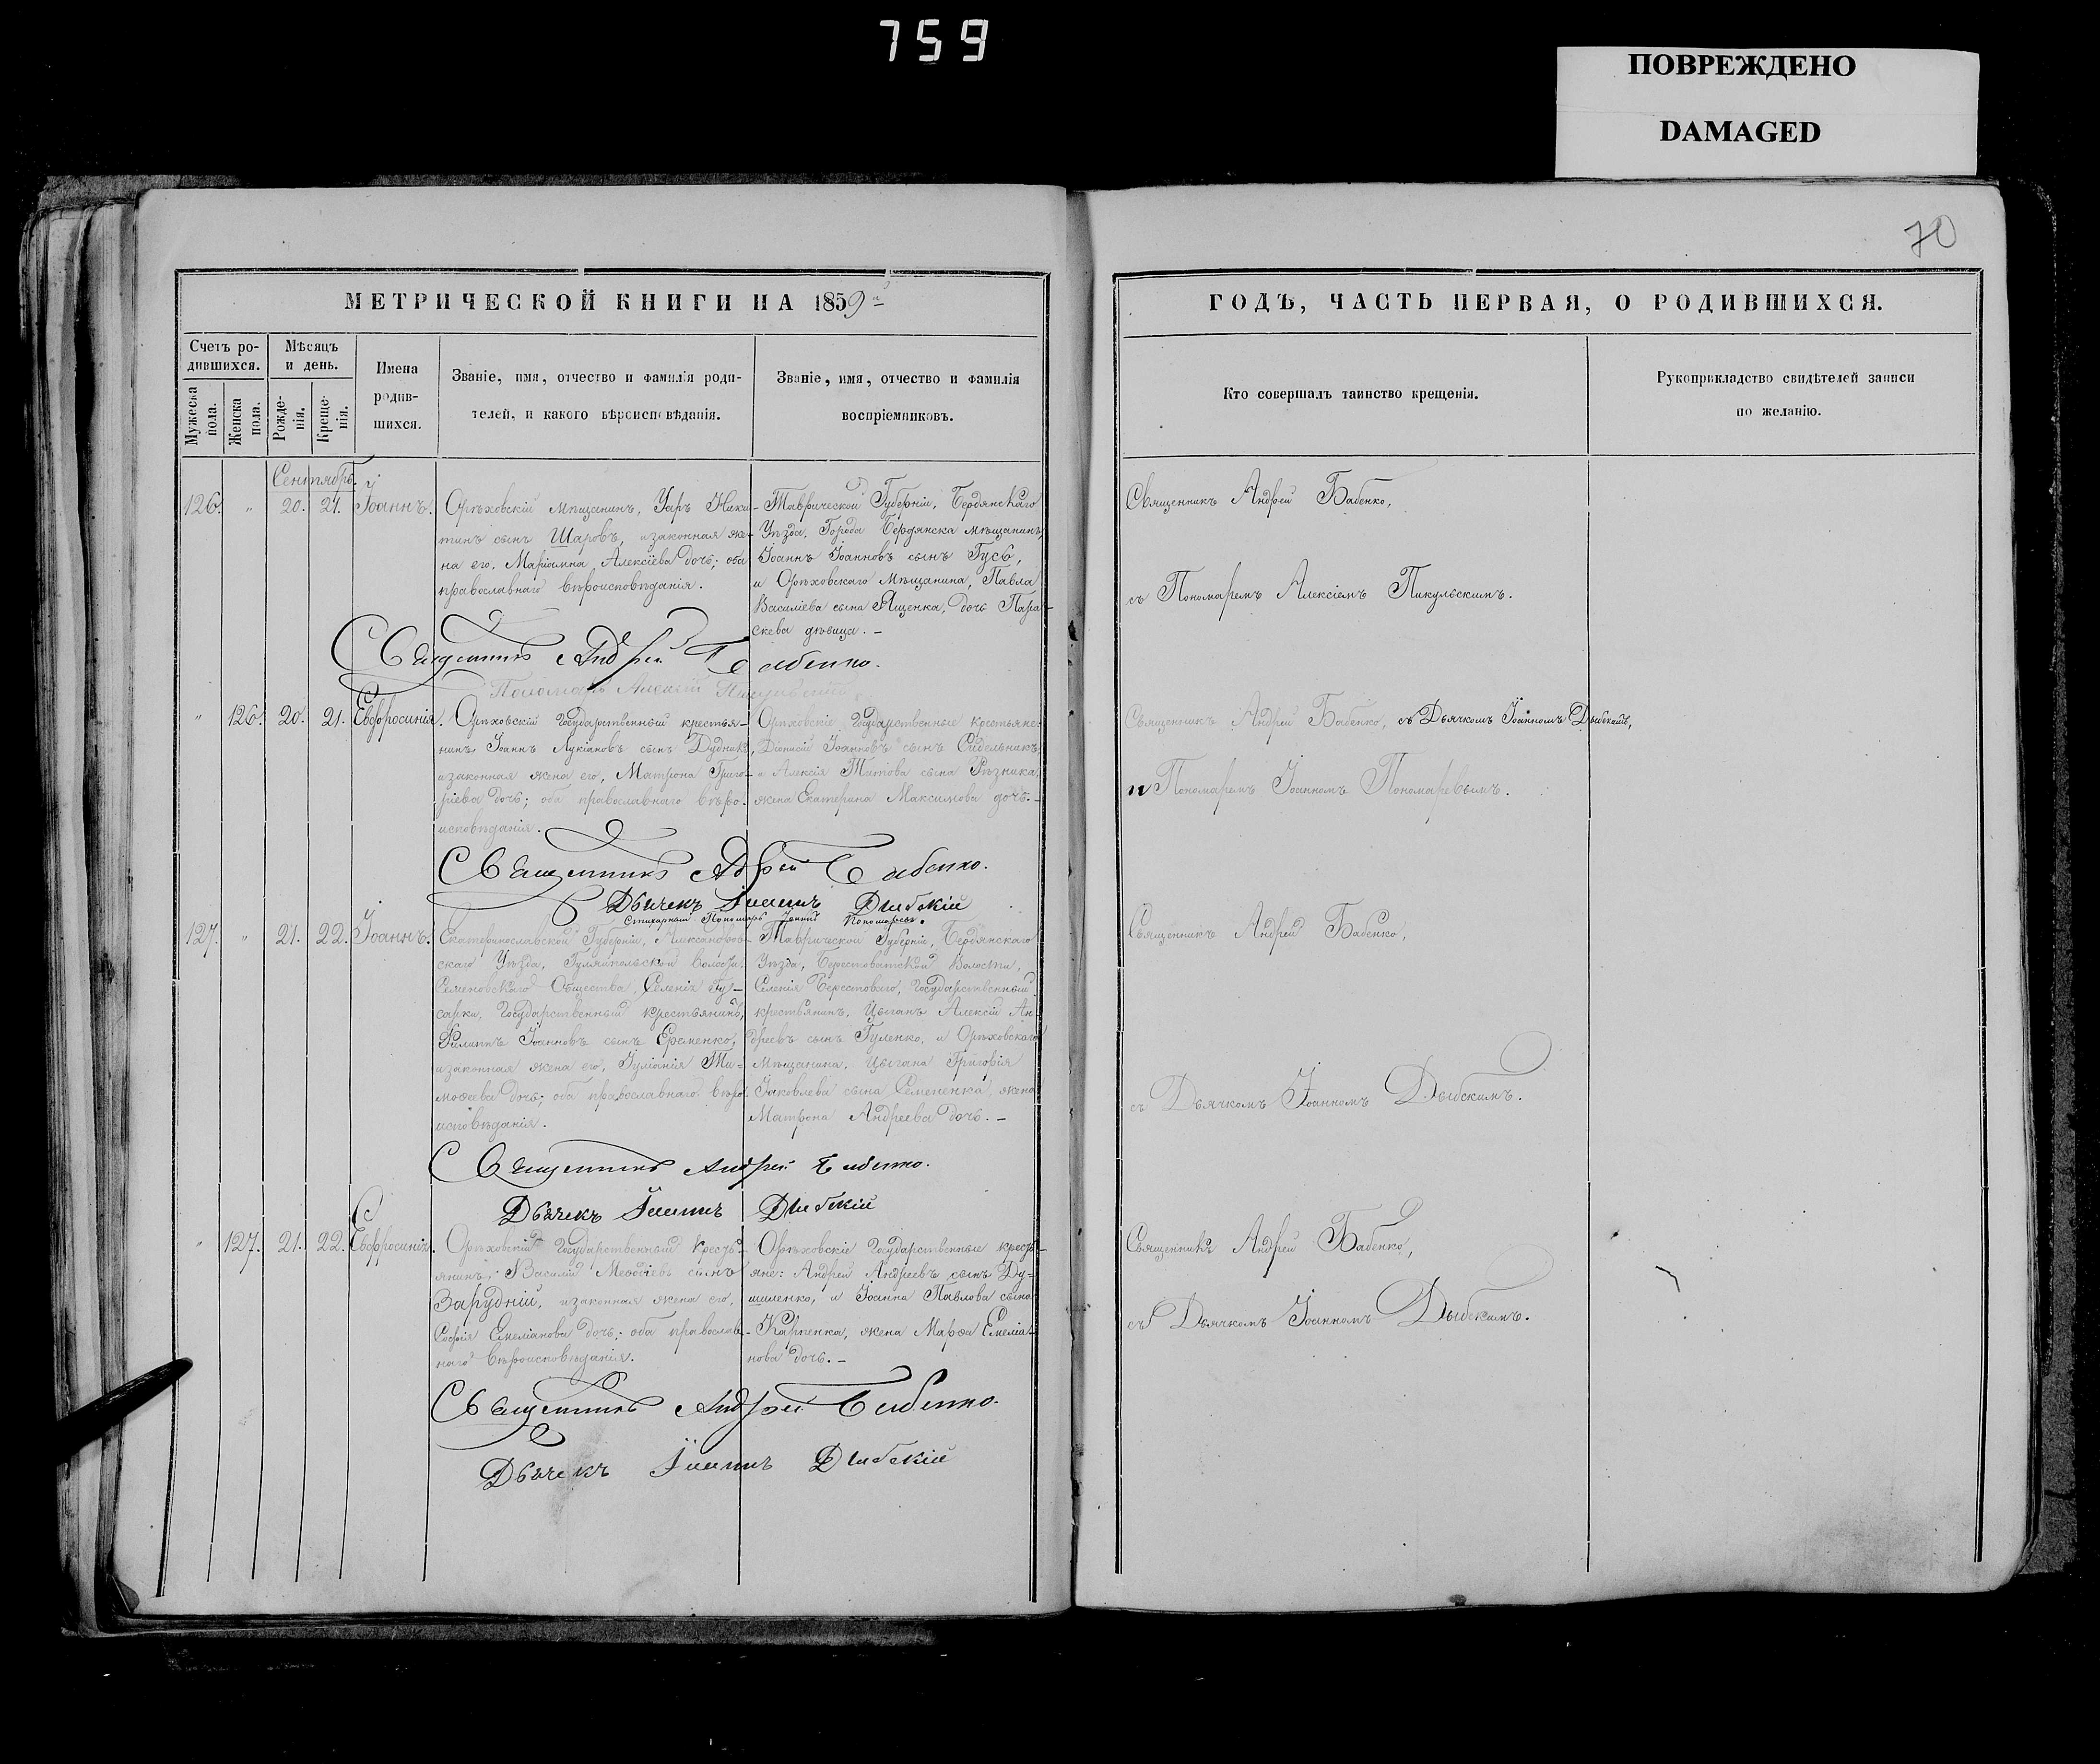 759
ПОВРЕЖДЕНО
DAMAGED
70
МЕТРИЧЕСКОЙ КНИГИ НА 1859й
Счетъ ро-
дившихся.
Мужеска пола.
Женска пола.
Мѣсяцъ
и день.
Рожде-
нія.
Креще-
нія.
Имена
родив-
шихся.
Званіе, имя, отчество и фамилія роди-
телей, и какого вѣроисповѣданія.
Званіе, имя, отчество и фамилія
воспріемниковъ.
Сентябрь
126. " 20. 21. Іоаннъ.
Орѣховскій мѣщанинъ, Уаръ Ники-
тинъ сынъ Шаровъ, и законная же-
на его, Маріамна Алексіева дочь; оба
православнаго вѣроисповѣданія.
Таврической Губерніи, Бердянскаго
Уѣзда, Города Бердянска мѣщанинъ,
Іоаннъ Іоанновъ сынъ Гусь,
и Орѣховскаго мѣщанина, Павла
Василіева сына Ященка, дочь Пара-
скева дѣвица. –
Священникъ Андрей Бабенко.
Пономарь Алексій Пикульскій
" 126. 20. 21. Евфросинія.
Орѣховскій Государственный крестья-
нинъ Іоаннъ Лукіановъ сынъ Дудникъ,
и законная жена его, Матрона Григо-
ріева дочь; оба православнаго вѣро-
исповѣданія.
Орѣховскіе Государственные крестьяне:
Діонисій Іоанновъ сынъ Сидельникъ,
и Алексія Титова сына Рѣзника,
жена Екатерина Максимова дочь. –
Священникъ Андрей Бабенко.
Дьячекъ Іоаннъ Дыбскій
Стихарный Пономарь Іоаннъ Пономаревъ.
127. " 21. 22. Іоаннъ.
Екатеринославской Губерніи, Александров-
скаго Уѣзда, Гуляйпольской волости,
Семеновскаго Общества, Селенія Гу-
сарки, Государственный крестьянинъ,
Филиппъ Іоанновъ сынъ Еременко,
и законная жена его, Іуліанія Ти-
моѳеева дочь; оба православнаго вѣро-
исповѣданія.
Таврической Губерніи, Бердянскаго
Уѣзда, Берестоватской Волости,
Селенія Берестоваго, Государственный
крестьянинъ, Цыганъ Алексій Ан-
дреевъ сынъ Гуленко, и Орѣховскаго
мѣщанина, Цыгана Григорія
Іаковлева сына Семененка, жена
Матрона Андреева дочь. –
Священникъ Андрей Бабенко.
Дьячекъ Іоаннъ Дыбскій
" 127. 21. 22. Евфросинія.
Орѣховскій Государственный кресть-
янинъ, Василій Меѳодіевъ сынъ
Зарудній, и законная жена его,
Софія Емеліанова дочь; оба православ-
наго вѣроисповѣданія.
Орѣховскіе Государственные кресть-
яне: Андрей Андреевъ сынъ Ду-
шиленко, и Іоанна Павлова сына
Карпенка, жена Марѳа Емеліа-
нова дочь. –
Священникъ Андрей Бабенко.
Дьячекъ Іоаннъ Дыбскій
ГОДЪ, ЧАСТЬ ПЕРВАЯ, О РОДИВШИХСЯ.
Кто совершалъ таинство крещенія.
Рукоприкладство свидѣтелей записи
по желанію.
Священникъ Андрей Бабенко,
съ Пономаремъ Алексіемъ Пикульскимъ.
Священникъ Андрей Бабенко, съ Дьячкомъ Іоанномъ Дыбскимъ,
и Пономаремъ Іоанномъ Пономаревымъ.
Священникъ Андрей Бабенко,
съ Дьячкомъ Іоанномъ Дыбскимъ.
Священникъ Андрей Бабенко,
съ Дьячкомъ Іоанномъ Дыбскимъ.